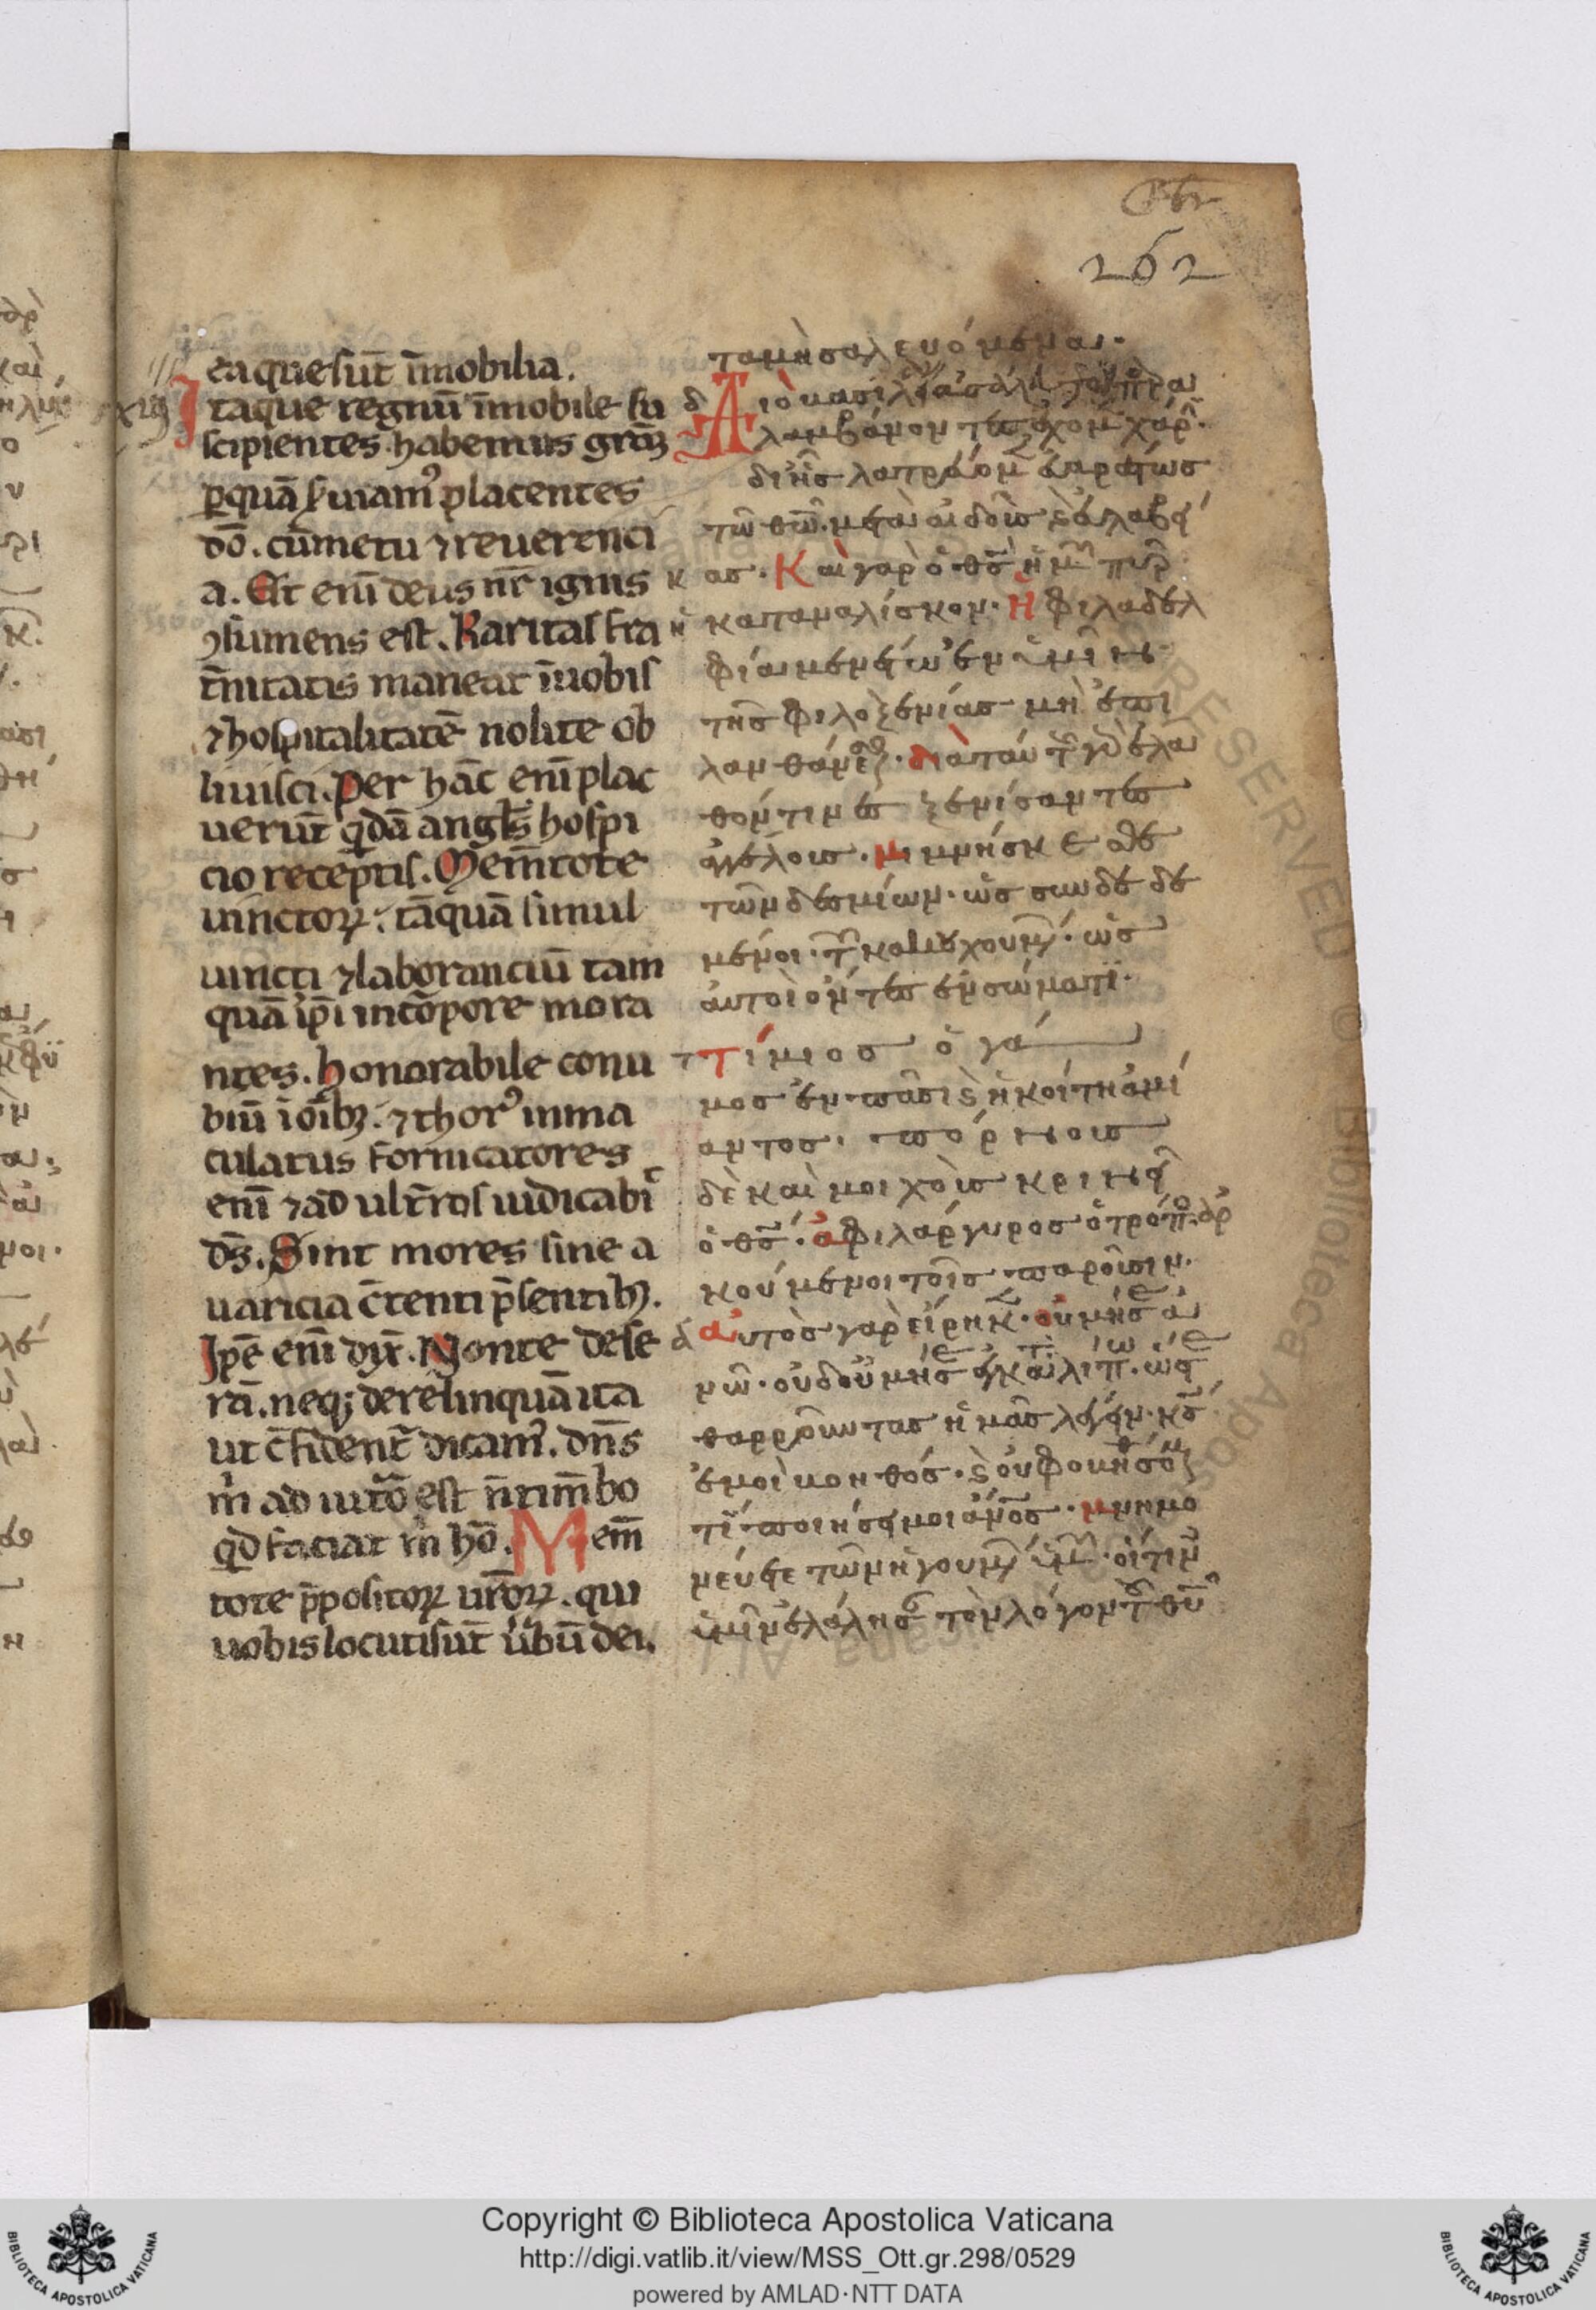 262
ea que sūt īmobilia.
xiij Itaque regnū īmobile su
scipientes habemus grāꝫ
ꝑ quā s̄uiamꝰ placentes
dō. cū metu ⁊ reuerenci
a. Et eni᷑ deus nr̄ ignis
ꝯsumens est. Karitas fra
t̄nitatis maneat ī uobis
⁊ hospitalitatē nolite ob
liuisci. Per hāc eni᷑ plac
uerūt q̄dā angl̄s hospi
cio receptis. Mem̄tote
uinctoꝝ. tāquā simul
uincti ⁊ laboranciū tam
quā ip̄i in cōpore mora
ntes. honorabile conu
biū ī oībꝫ. ⁊ thorꝰ inma
culatus fornicatores
enī ⁊ adult̄ros iudicabi᷑t
ds̄. Sint mores sine a
uaricia c̄tenti p̄sentibꝫ.
Ipē enī dix̄. Non te dese
rā. neqꝫ derelinquā ita
ut c̄fident̄ dicamꝰ. dn̄s
m̄ adiutō est n̄ timbo
qd̄ faciat m̄ hō. Mem̄
tote p̄positoꝝ ur̄oꝝ. qui
uobis locuti sūt ūbū dei.
τα μὴ σαλευόμεναι.
λαμβάνοντες ἔχομ χάρ.
δι ἧς λατρεύομ εὐαρέστως
τῶ θῶ. μετὰ αἰδοῦς ϗ εὐλαβεί
ας. Καὶ γὰρ ὁ θς ἡμ πῦρ
καταναλίσκον. Ἡ φιλαδελ
φία μενέτω ἐν ὑμῖν
τῆς φιλοξενίας μὴ ἐπι
λανθάνεσθ. διὰ ταύτ γὰρ ἔλα
θόν τινες ξενίσαντες
ἀγγέλους. μιμνήσκεσθε
τῶν δεσμίων. ὡς συνδεδε
μένοι. τ κακουχουμ. ὡς
αὐτοὶ ὄντες ἐν σώματι.
Τίμιος ὁ γά
μος ἐν πᾶσι ϗ ἡ κοίτη ἀμί
αντος. πόρνους
δὲ καὶ μοιχοὺς κρινεῖ
ὁ θς. ἀφιλάργυρος ὁ τρόπος. ἀρ
κούμενοι τοῖς παροῦσιν.
αὐτὸς γὰρ εἴρηκ. οὐ μή σε ἀ
νῶ. οὐδ οὐ μή σε ἐγκαταλίπω. ὥστε
θαρροῦντας ἡμᾶς λέγειν. κς
ἐμοὶ βοηθός. ϗ οὐ φοβηθήσομ
τί ποιήσει μοι ἄνος. μνημο
νεύετε τῶν ἡγουμ ὑμ. οἵτιν
ὑμῖν ἐλάλησ τὸν λόγον τ θῦ
Copyright © Biblioteca Apostolica Vaticana
http://digi.vatlib.it/view/MSS_Ott.gr.298/0529
powered by AMLAD·NTT DATA
BIBLIOTECA APOSTOLICA VATICANA
BIBLIOTECA APOSTOLICA VATICANA